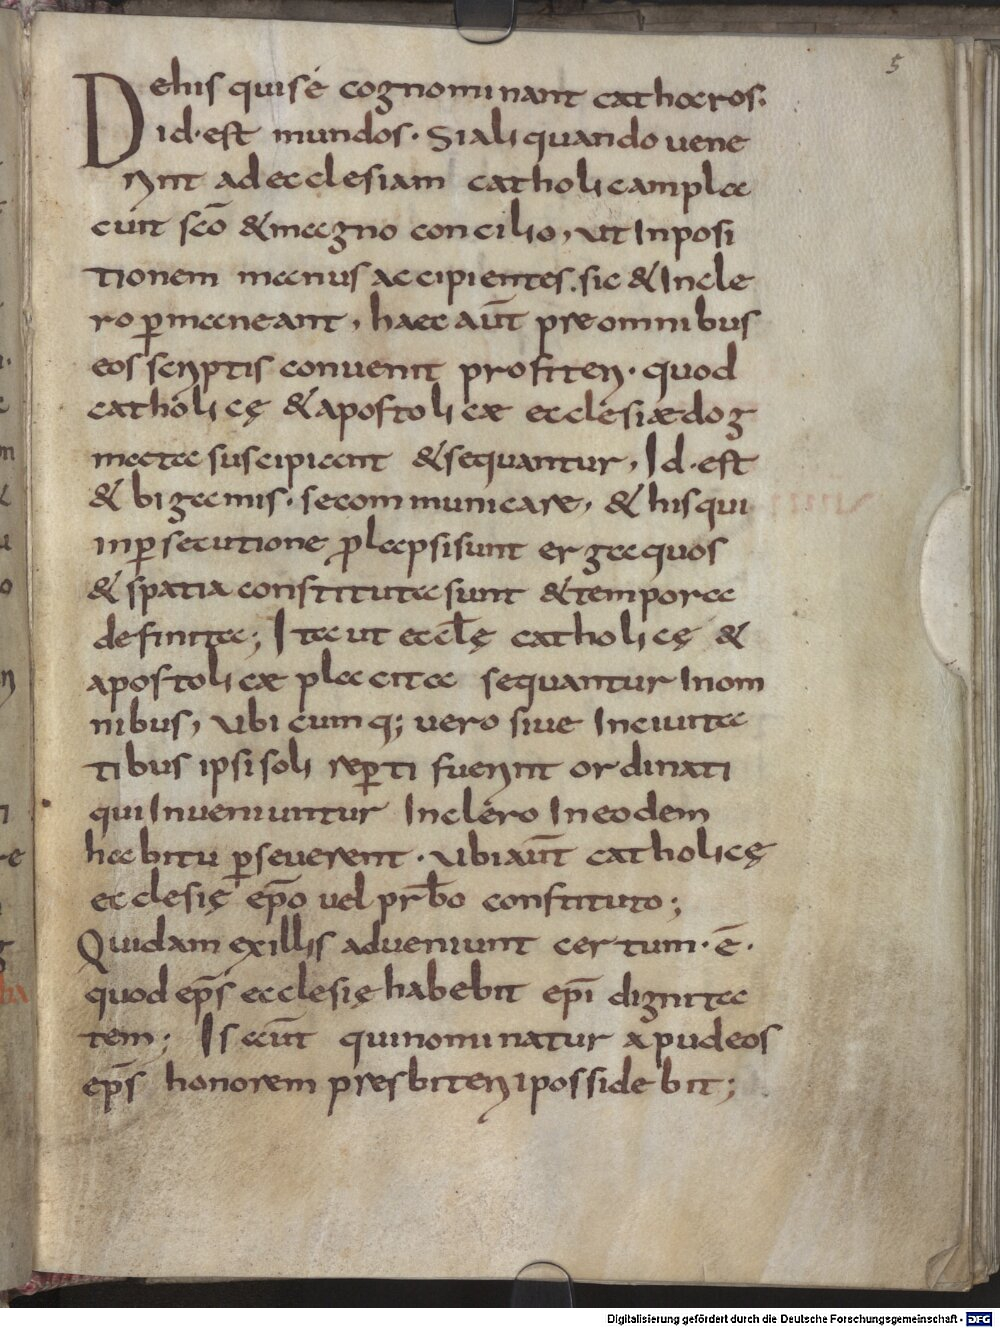 5
Dehis quisé cognominant catharos.
id·est mundos· Sialiquando uene
rint adecclesiam catholicampla
cuit sc̄o &magno concilio, ut Inposi
tionem manus accipientes. sic & Incle
ro p̱maneant, haec aūt prae omnibus
eos scriptis conuenit profiteri· quod
catholicę & apostolicae ecclesiae dog
mata suscipiant & sequantur, Id·est
& bigamis· secommunicare, & hisqui
inp̱secutione p̄lapsisunt ergaquos
& spatia constitutasunt & tempora
definita; Ita ut eccl̄ę catholicę &
apostolicae placita sequantur Inom
nibus, ubicumq; uero siue Inciuita
tibus ipsi soli rep̱ti fuerint ordinati
qui Inueniuntur Inclero Ineodem
habitu p̱seuerent· ubi aūt catholicę
ecclesię ep̄o uel prb̄o constituto;
Quidam exillis adueniunt certum·ē·
quod ep̄s ecclesię habebit ep̄i dignita
tem; Is aūt quinominatur apudeos
ep̄s honorem presbiterii possidebit;
Digitalisierung gefördert durch die Deutsche Forschungsgemeinschaft - DFG